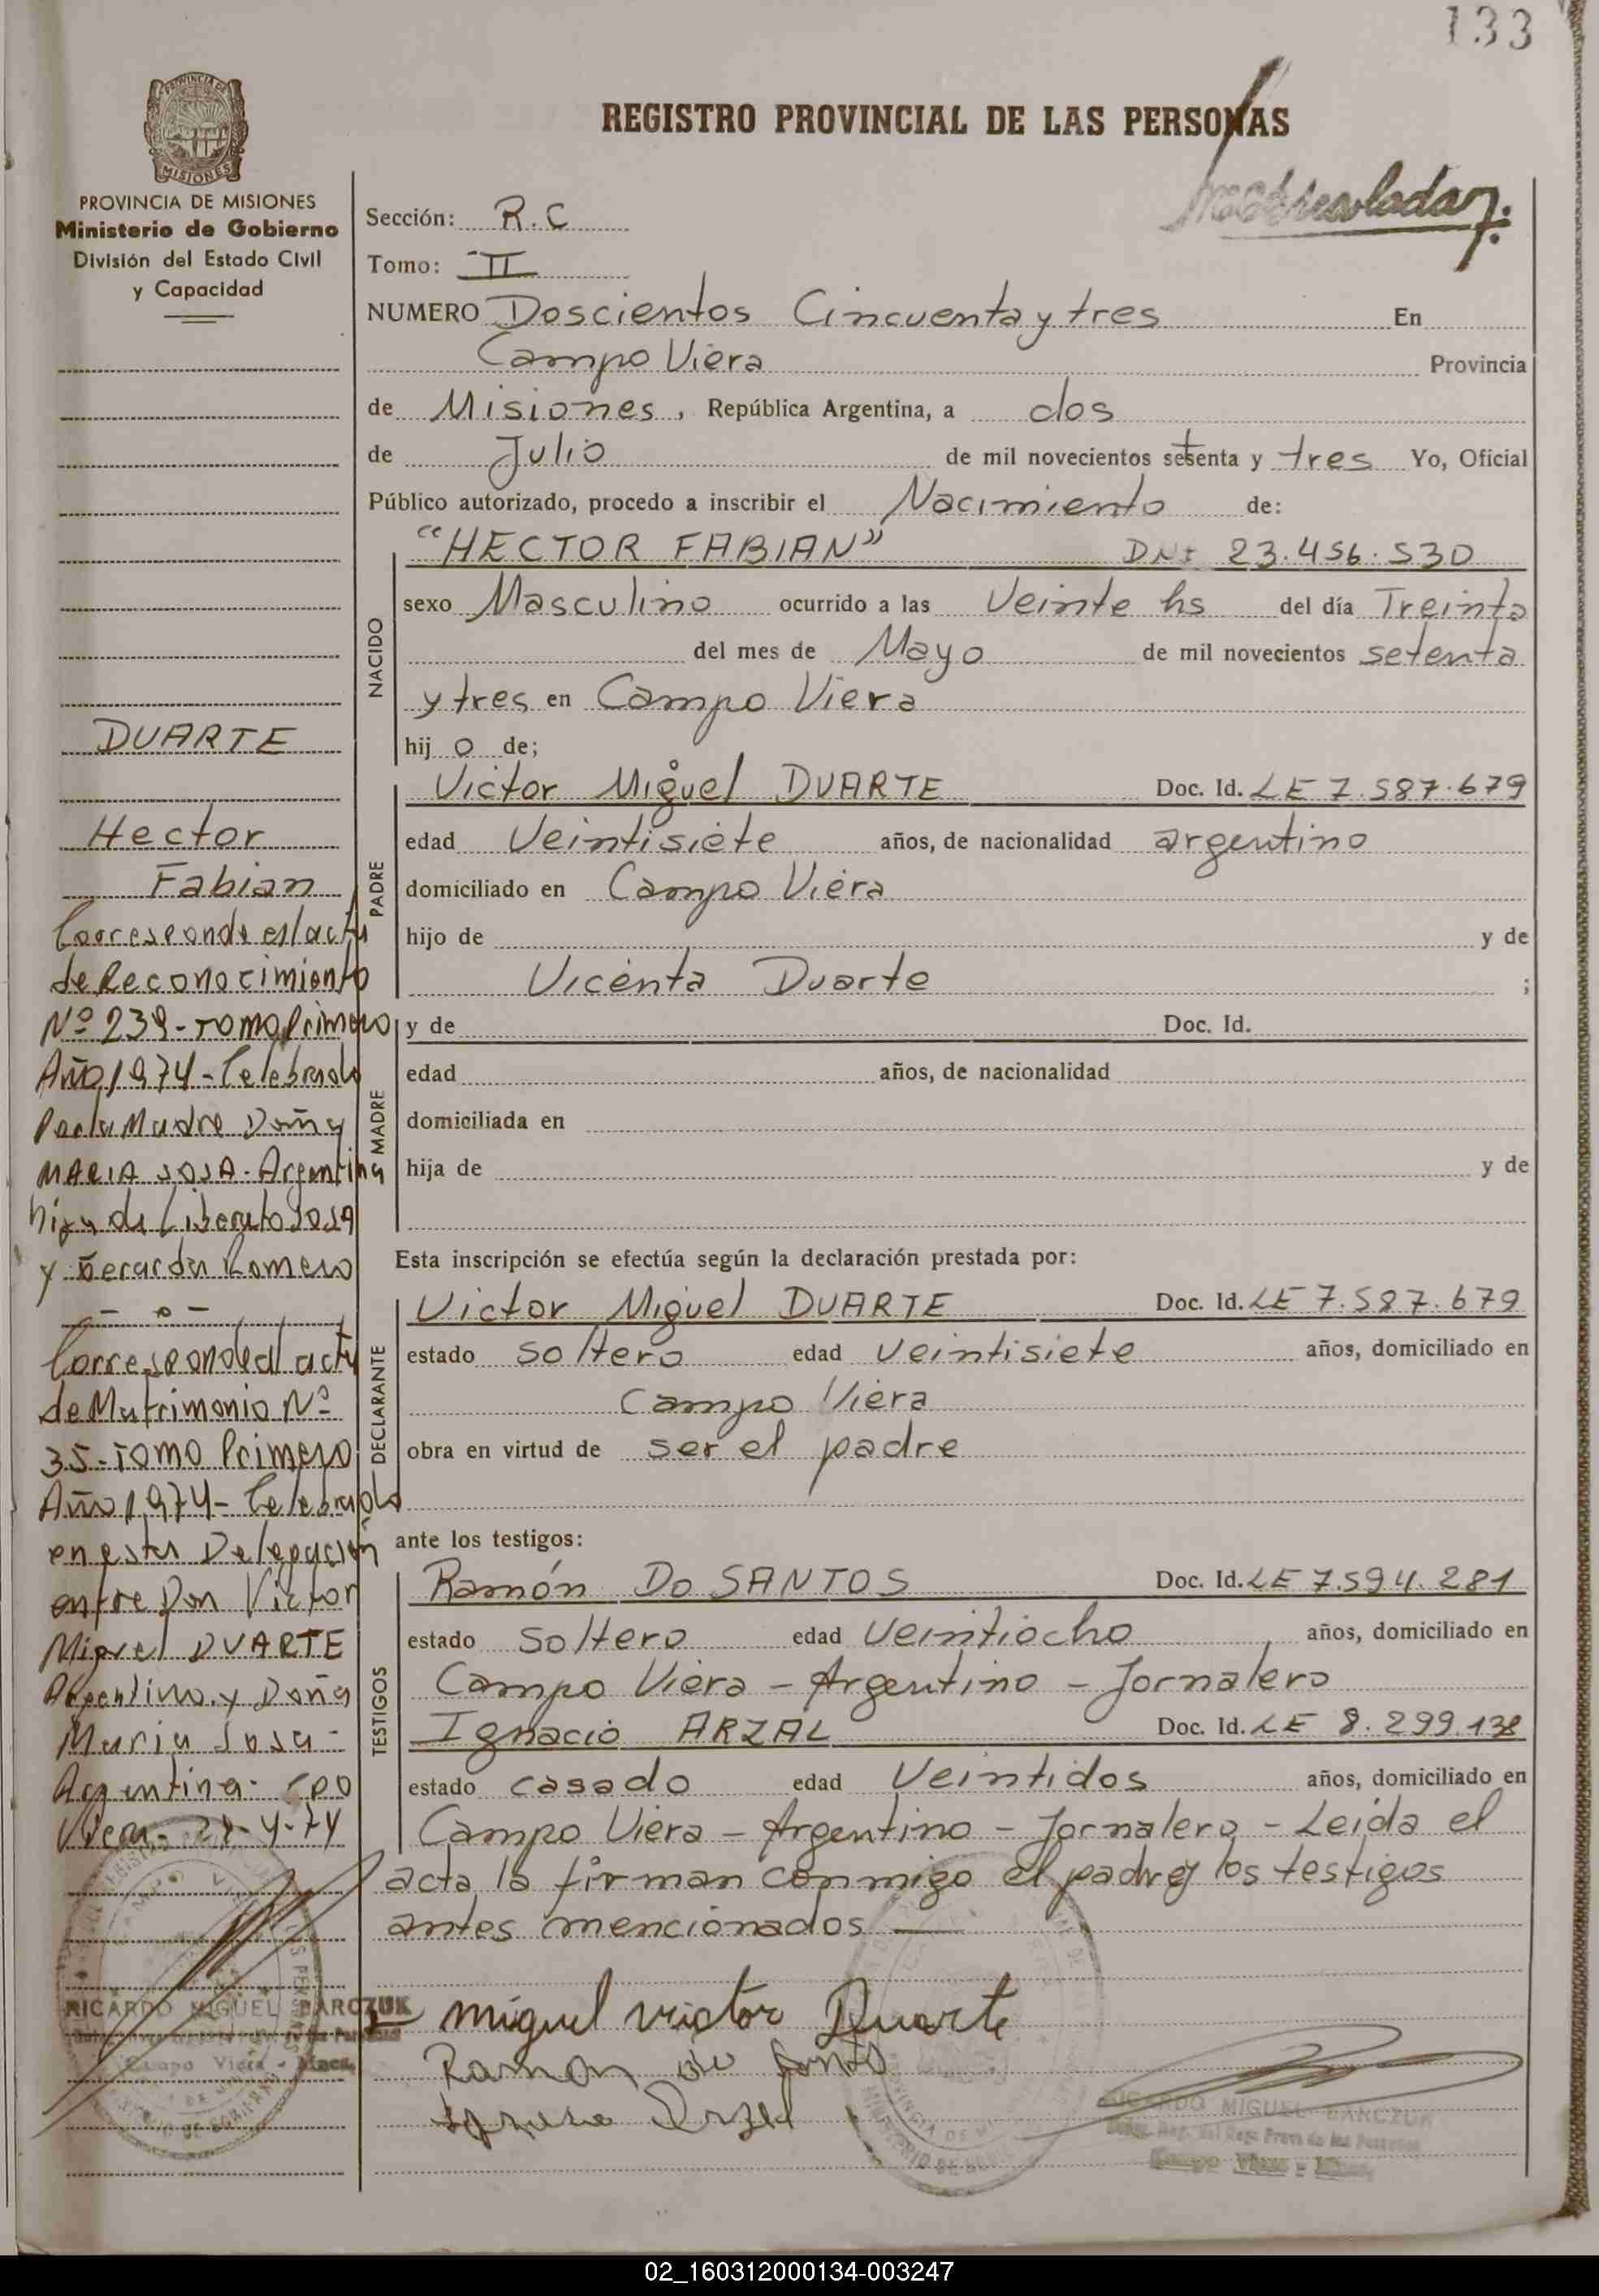 133
REGISTRO PROVINCIAL DE LAS PERSONAS
PROVINCIA DE MISIONES
Ministerio de Gobierno
División del Estado Civil
y Capacidad
Sección: R.C
Tomo: II
NUMERO Doscientos Cincuenta y tres En
Campo Viera Provincia
de Misiones, República Argentina, a dos
de Julio de mil novecientos setenta y tres Yo, Oficial
Público autorizado, procedo a inscribir el Nacimiento de:
NACIDO
"HECTOR FABIAN" DNI 23.456.530
sexo Masculino ocurrido a las Veinte hs del día Treinta
del mes de Mayo de mil novecientos setenta
y tres en Campo Viera
hijo de;
PADRE
Victor Miguel DUARTE Doc. Id. LE 7.587.679
edad Veintisiete años, de nacionalidad argentino
domiciliado en Campo Viera
hijo de y de
Vicenta Duarte ;
MADRE
y de Doc. Id.
edad años, de nacionalidad
domiciliada en
hija de y de
Esta inscripción se efectúa según la declaración prestada por:
DECLARANTE
Victor Miguel DUARTE Doc. Id. LE 7.587.679
estado soltero edad Veintisiete años, domiciliado en
Campo Viera
obra en virtud de ser el padre
ante los testigos:
TESTIGOS
Ramón Do SANTOS Doc. Id. LE 7.594.281
estado soltero edad Veintiocho años, domiciliado en
Campo Viera - Argentino - Jornalero
Ignacio ARZAL Doc. Id. LE 8.299.138
estado casado edad Veintidos años, domiciliado en
Campo Viera - Argentino - Jornalero - Leida el
acta la firman conmigo el padre y los testigos
antes mencionados
miguel victor Duarte
Ramon do Santos
RICARDO MIGUEL BARCZUK
Campo Viera - Mnes.
DUARTE
Hector
Fabian
Corresponde el acta
de Reconocimiento
Nº 239 - Tomo Primero
Año 1974 - Celebrado
Por la Madre Doña
MARIA SOSA - Argentina
hija de Liberato Sosa
y Gerarda Romero
- o -
Corresponde al acta
de Matrimonio Nº
35 - Tomo Primero
Año 1974 - Celebrado
en esta Delegación
entre Don Victor
Miguel DUARTE
Argentino y Doña
Maria Sosa -
Argentina - Cpo
Viera - 4-74
RICARDO MIGUEL BARCZUK
Campo Viera - Mnes.
02_160312000134-003247